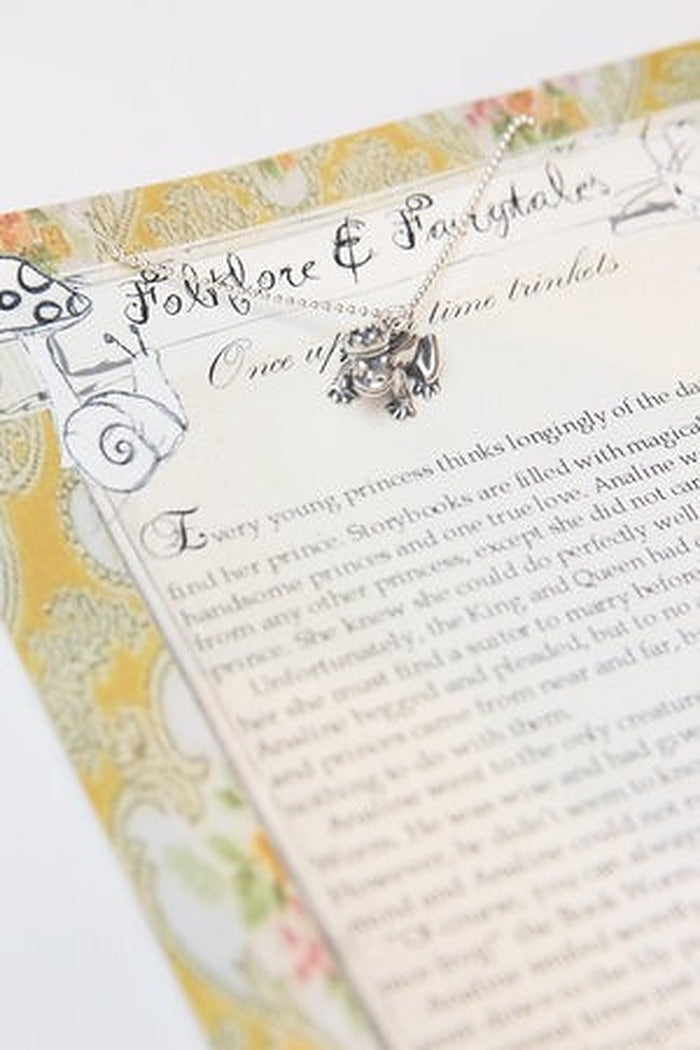 Folklore & Fairytales
Once up time trinkets
Every young princess thinks longingly of the da
find her prince. Storybooks are filled with magical
handsome princes and one true love. Analine w
from any other princess, except she did not car
prince. She knew she could do perfectly well
Unfortunately, the King and Queen had
her she must find a suitor to marry before
Analine begged and pleaded, but to no
and princes came from near and far, b
nothing to do with them.
Analine went to the only creatur
Worm. He was wise and had
However, he didn't seem to
mind and Analine could not
"Of course, you can always
the Book Wor
Analine